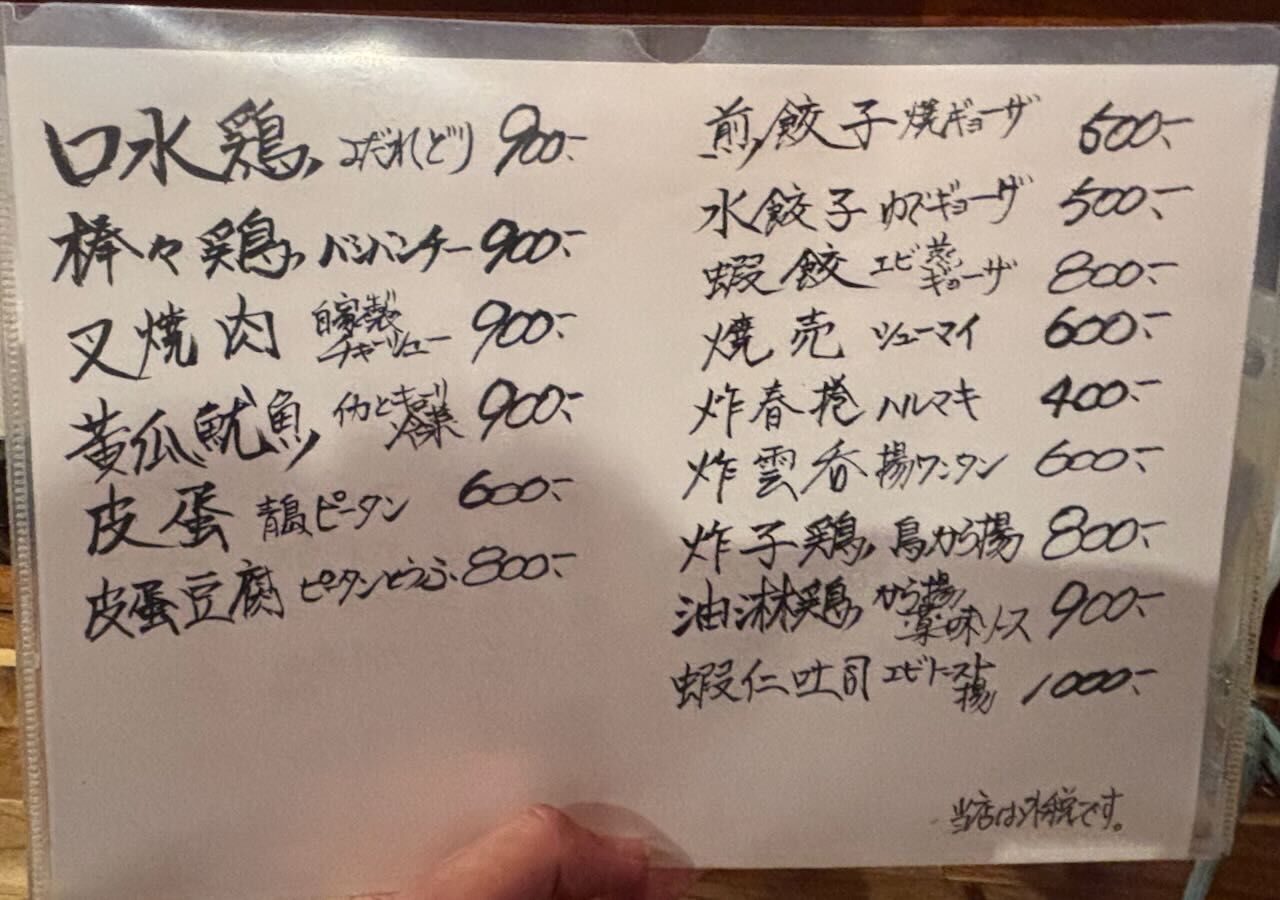 口水鶏 よだれどり 900.-
棒々鶏 バンバンチー 900.-
叉焼肉 自家製チャーシュー 900.-
黄瓜魷魚 イカとキュウリ冷菜 900.-
皮蛋 青島ピータン 600.-
皮蛋豆腐 ピータンとうふ 800.-
煎餃子 焼ギョーザ 500.-
水餃子 ゆでギョーザ 500.-
蝦餃 エビ蒸ギョーザ 800.-
焼売 シューマイ 600.-
炸春捲 ハルマキ 400.-
炸雲呑 揚ワンタン 600.-
炸子鶏 鳥から揚 800.-
油淋鶏 から揚薬味ソース 900.-
蝦仁吐司 エビトースト揚 1000.-
当店は外税です。